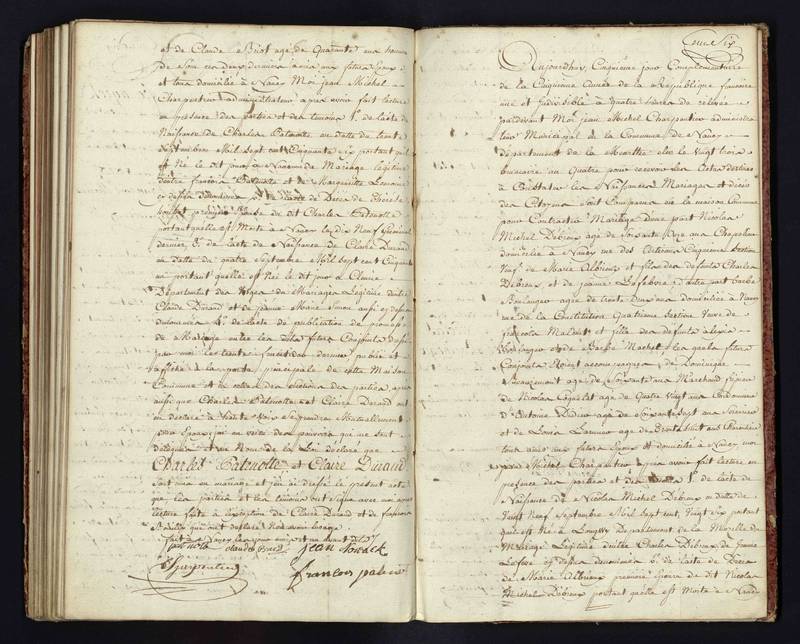 et de Claude Briot agé de Quarante ans
et tous domiciliés à Nancy Moi jean Michel
Charpentier administrateur apres avoir fait lecture
en presence des parties et des temoins 1° de lacte de
Naissance de Charles Patenotte en datte du trente
Septembre Mil Sept cent Cinquante six portant quil
est Né le dit jour à Nancy de Mariage légitime
dentre françois Patenotte et de Marguerite
cy dessus dénommés 2° de lacte de Deces de Therese
epouse de dit Charles Patenotte
portant quelle est Morte à Nancy le dix Neuf
dernier, 3° de lacte de Naissance de Claire Durand
en datte du quatre Septembre Mil Sept cent Cinquante
un portant quelle est Née le dit jour à
Departement des Vosges du Mariage Légitime dentre
Claude Durand et de jeanne Marie Simon aussi cy dessus
dénommés 4° de lacte de publication de promesse
de Mariage entre les dits futurs Conjoints
par moi le trente fructidor dernier publié et
affiché à la porte principale de cette Maison
Commune et en celles des Sections des parties, apres
aussi que Charles Patenotte et Claire Durand ont
declaré à haute Voix Se prendre Mutuellement
pour Epoux j'ai en vertu des pouvoirs qui me sont
délégués et au Nom de la Loi déclaré que
Charles Patenotte et Claire Durand
Sont unis en mariage et j'ai dressé le present acte
que les parties et les témoins ont Signé avec moi apres
lecture faite à lexception de Claire Durand et de
qui ont declaré Non avoir lusage
fait à Nancy les jour mois et an avant dits
patenotte claude Briot jean
Charpentier
françois patenotte
Onze Six
Aujourdhui Cinquieme jour Complementaire
de la Cinquieme année de la Republique francoise
une et jndivisible à quatre heures de relevée
pardevant Moi jean Michel Charpentier administra
teur Municipal de la Commune de Nancy
département de la Meurthe elu le Vingt trois
brumaire an Quatre pour recevoir les Actes destinés
à Constater les Naissances Mariages et déces
des Citoyens Sont Comparus en la maison Commune
pour Contracter Mariage dune part Nicolas
Michel Debroux agé de Soixante Onze ans Chapelier
domicilié à Nancy rue des Cinquieme Section
Veuf de Marie Albrieux et fils des defunts Charles
Debroux et de jeanne Lafosse; d'autre part barbe
Boulanger agée de trente deux ans domiciliée à Nancy
rue de la Constitution Quatrieme Section Veuve de
françois et fille des defunts
Boulanger et de Barbe Machet, les quels futurs
Conjoints etoient accompagnés de Dominique
agé de Soixante ans Marchand fripier
de Nicolas Coquelet agé de Quatre Vingt ans Cordonnier
d'Antoine agé de Soixante Sept ans
et de Louis agé de trente huit ans
tous amis aux futurs Epoux et domiciliés à Nancy moi
jean Michel Charpentier apres avoir fait lecture en
presence des parties et des temoins 1° de lacte de
Naissance de Nicolas Michel Debroux en datte du
Vingt Neuf Septembre Mil Sept cent Vingt Six portant
quil est Né à Longwy Departement de la Moselle de
Mariage Légitime dentre Charles Debroux et de Jeanne
Lafosse cy dessus denommés 2° de lacte de Deces
de Marie Albrieux premiere épouse de dit Nicolas
Michel Debroux portant quelle est Morte à Nancy